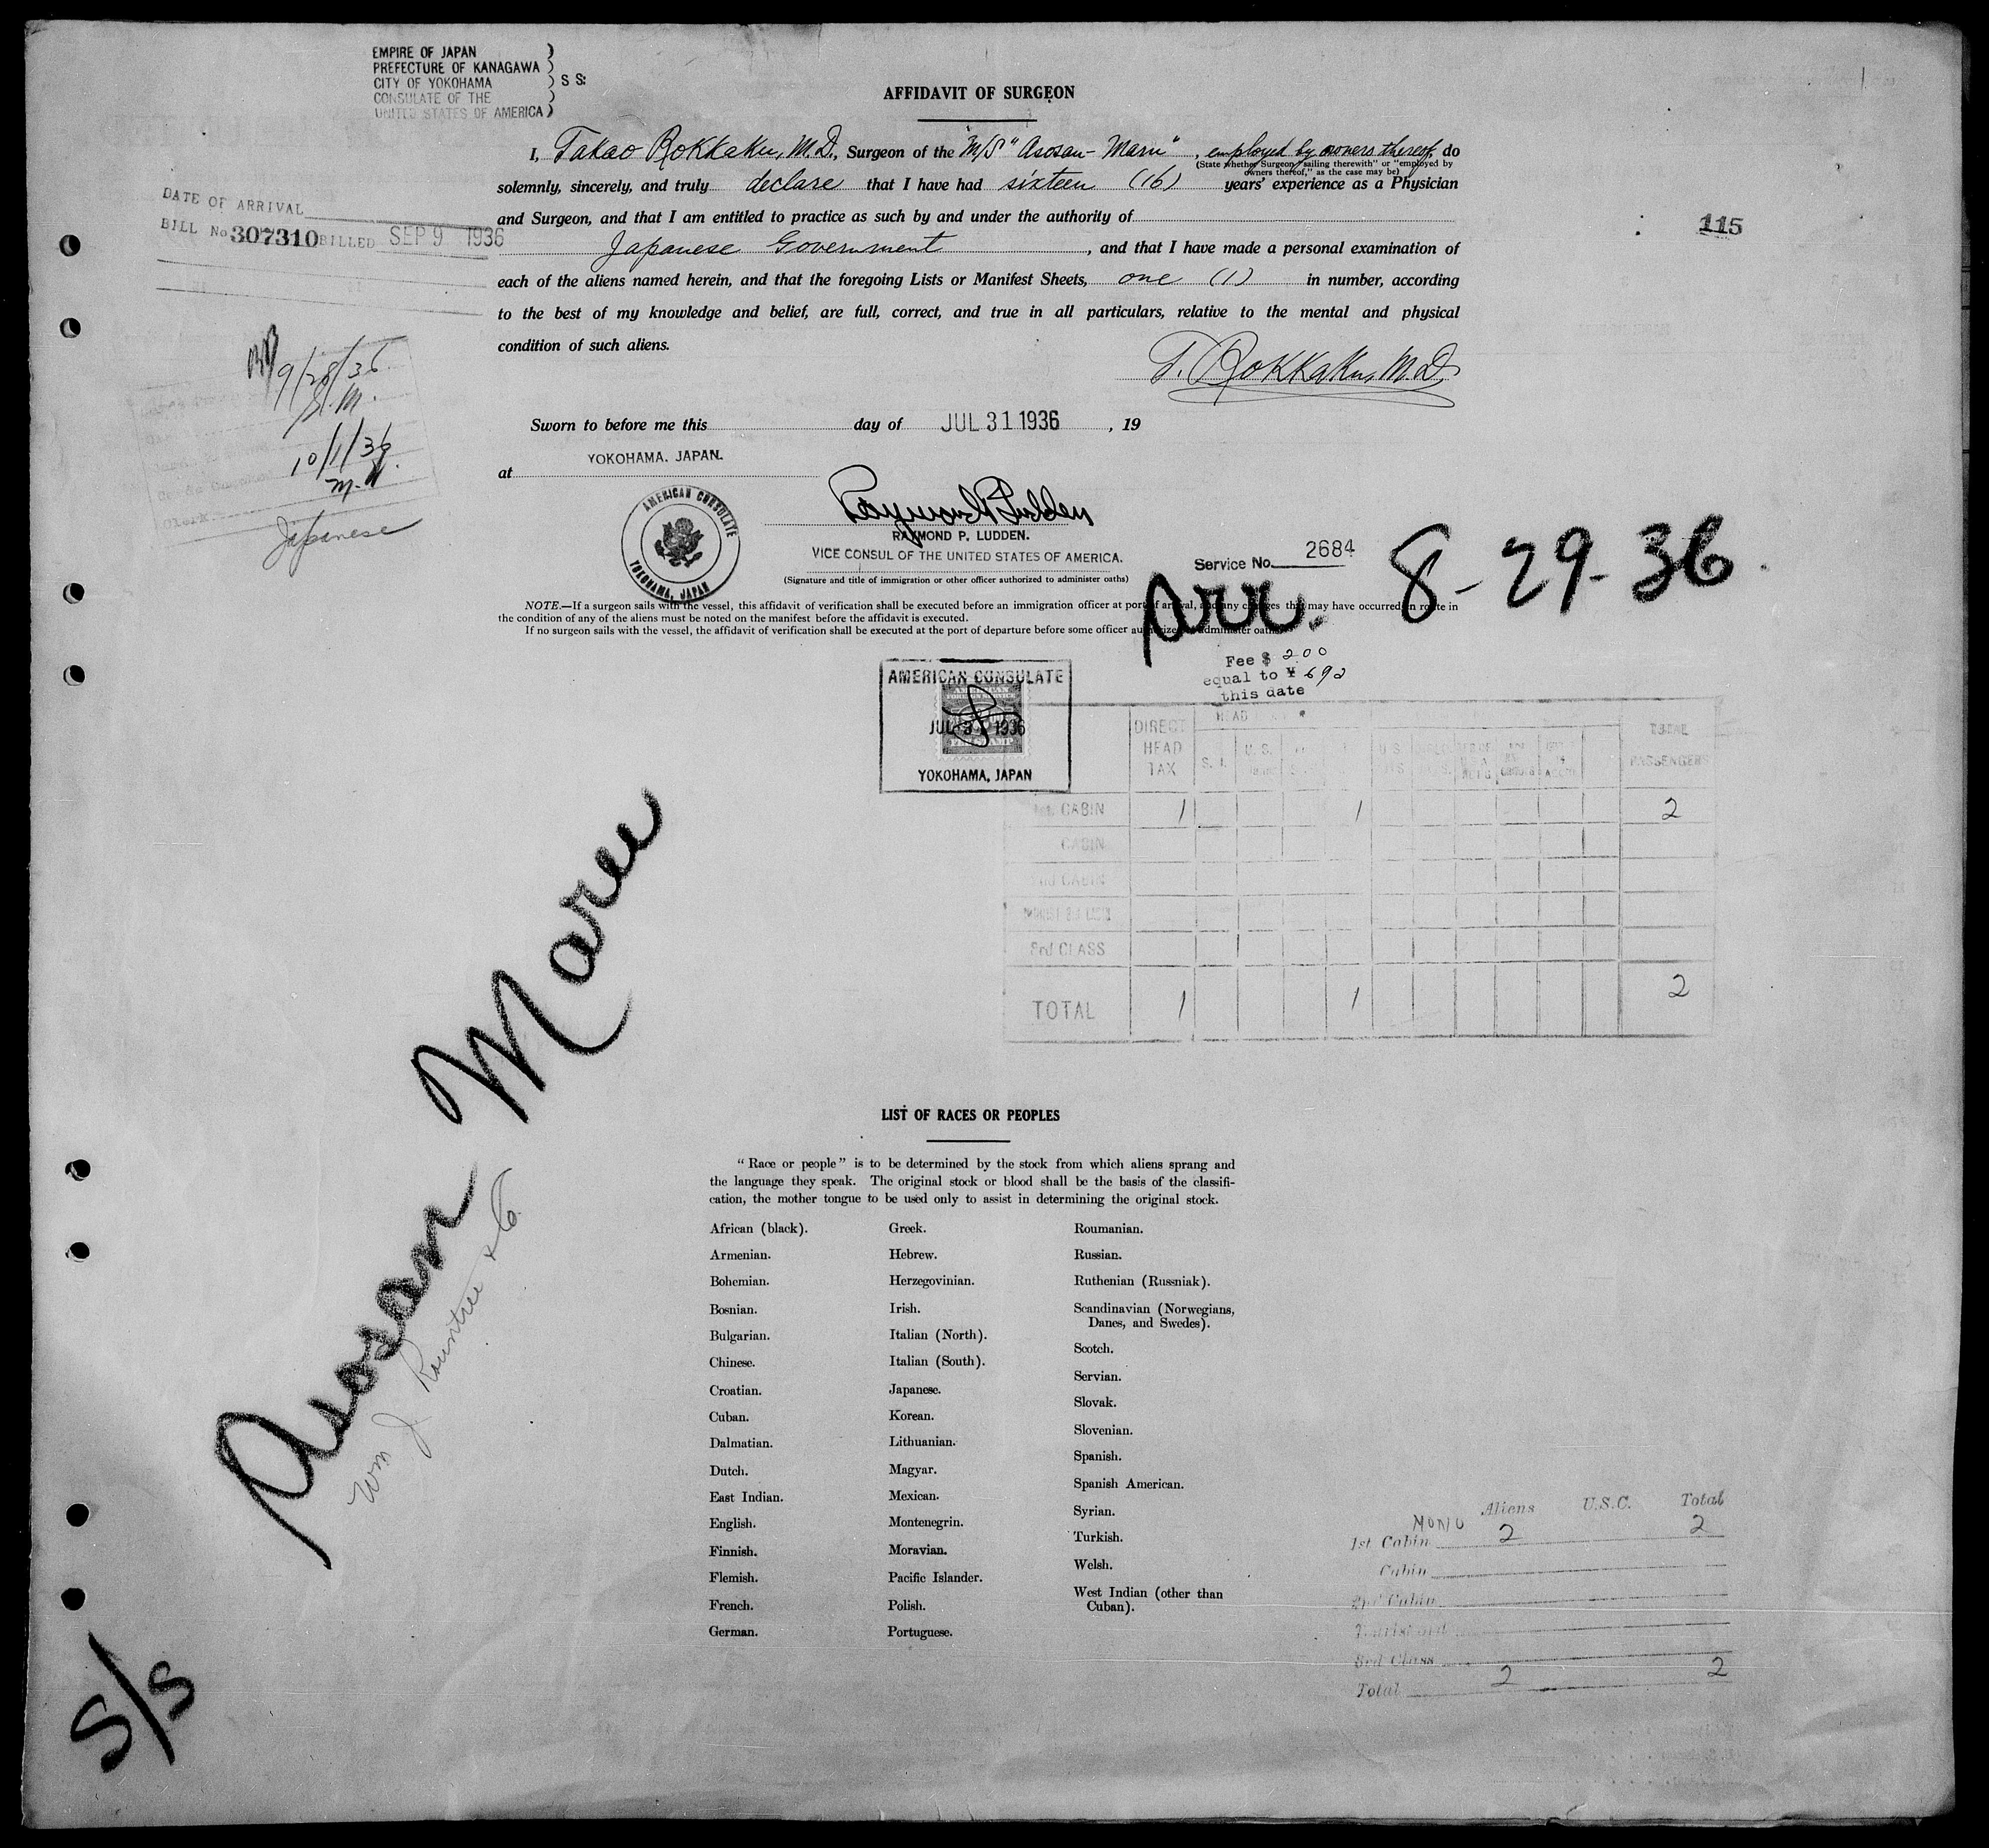 EMPIRE OF JAPAN )
PREFECTURE OF KANAGAWA )
CITY OF YOKOHAMA ) S S:
CONSULATE OF THE )
UNITED STATES OF AMERICA )
AFFIDAVIT OF SURGEON
I, Takao Rokkaku, M.D., Surgeon of the M/S "Asosan-Maru", employed by owners thereof, do
(State whether Surgeon "sailing therewith" or "employed by
owners thereof," as the case may be)
solemnly, sincerely, and truly declare that I have had sixteen (16) years' experience as a Physician
and Surgeon, and that I am entitled to practice as such by and under the authority of
Japanese Government, and that I have made a personal examination of
each of the aliens named herein, and that the foregoing Lists or Manifest Sheets, one (1) in number, according
to the best of my knowledge and belief, are full, correct, and true in all particulars, relative to the mental and physical
condition of such aliens.
T. Rokkaku, M.D.
DATE OF ARRIVAL
BILL No 307310 BILLED SEP 9 1936
115
9/28/36
10/1/36
Japanese
Sworn to before me this day of JUL 31 1936, 19
at YOKOHAMA. JAPAN.
AMERICAN CONSULATE
YOKOHAMA, JAPAN
Raymond P. Ludden
RAYMOND P. LUDDEN.
VICE CONSUL OF THE UNITED STATES OF AMERICA.
(Signature and title of immigration or other officer authorized to administer oaths)
Service No. 2684
Arr. 8-29-36
NOTE.—If a surgeon sails with the vessel, this affidavit of verification shall be executed before an immigration officer at port of arrival, and any changes that may have occurred en route in
the condition of any of the aliens must be noted on the manifest before the affidavit is executed.
If no surgeon sails with the vessel, the affidavit of verification shall be executed at the port of departure before some officer authorized to administer oaths.
Fee $ 2.00
equal to ¥ 6.92
this date
AMERICAN CONSULATE
JUL 31 1936
YOKOHAMA, JAPAN
DIRECT HEAD TAX
HEAD
S. I.
U. S.
PASSENGERS
1st. CABIN 1 1 2
CABIN
2nd CABIN
3rd CLASS
TOTAL 1 1 2
Asosan Maru
Wm J Rountree & Co.
S/S
LIST OF RACES OR PEOPLES
"Race or people" is to be determined by the stock from which aliens sprang and
the language they speak. The original stock or blood shall be the basis of the classifi-
cation, the mother tongue to be used only to assist in determining the original stock.
African (black).
Armenian.
Bohemian.
Bosnian.
Bulgarian.
Chinese.
Croatian.
Cuban.
Dalmatian.
Dutch.
East Indian.
English.
Finnish.
Flemish.
French.
German.
Greek.
Hebrew.
Herzegovinian.
Irish.
Italian (North).
Italian (South).
Japanese.
Korean.
Lithuanian.
Magyar.
Mexican.
Montenegrin.
Moravian.
Pacific Islander.
Polish.
Portuguese.
Roumanian.
Russian.
Ruthenian (Russniak).
Scandinavian (Norwegians,
Danes, and Swedes).
Scotch.
Servian.
Slovak.
Slovenian.
Spanish.
Spanish American.
Syrian.
Turkish.
Welsh.
West Indian (other than
Cuban).
Aliens U.S.C. Total
1st Cabin 2 2
Cabin
2nd Cabin
Tourist 3rd
3rd Class
Total 2 2